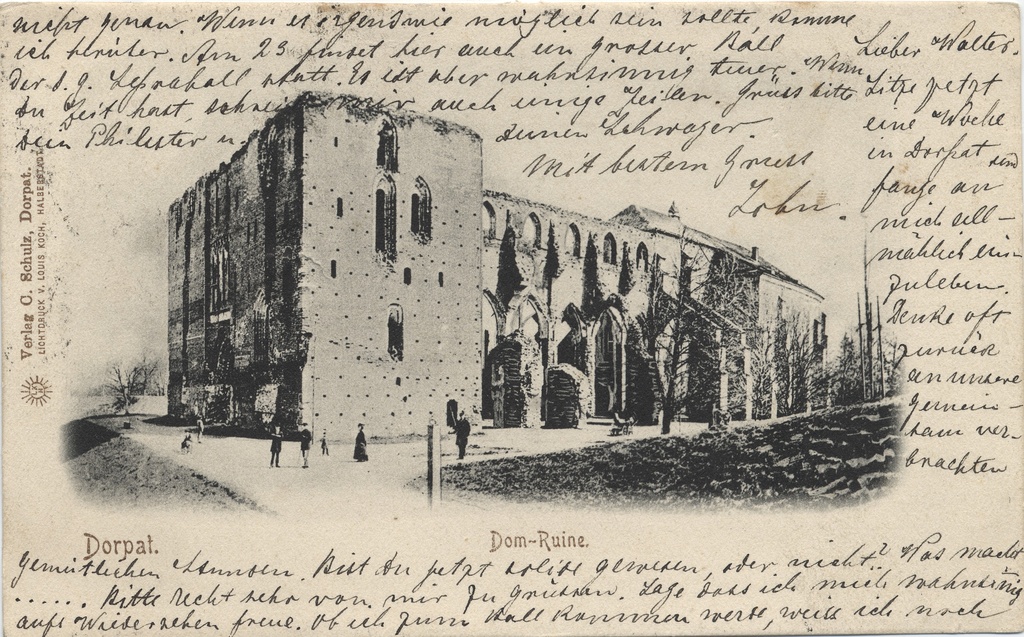 Lieber Walter.
Sitze jetzt
eine Woche
in Dorpat und
fange an
mich all-
mählich ein-
zuleben.
Denke oft
zurück
an unsere
gemein-
sam ver-
brachten
gemütlichen Stunden. Bist du jetzt solide gewesen, oder nicht? Was macht
...... Bitte recht sehr von mir zu grüssen. Sage dass ich mich wahnsinnig
aufs Wiedersehen freue. Ob ich zum Ball kommen werde, weiss ich noch
nicht genau. Wenn es irgendwie möglich sein sollte komme
ich herüber. Am 23 findet hier auch ein grosser Ball
der s. g. statt. Es ist aber wahnsinnig teuer. Wenn
du Zeit hast, schreib mir auch einige Zeilen. Grüss bitte
den Philister u. deinen Schwager.
Mit bestem Gruss
John.
Verlag C. Schulz, Dorpat.
LICHTDRUCK V. LOUIS KOCH, HALBERSTADT
Dorpat.
Dom-Ruine.